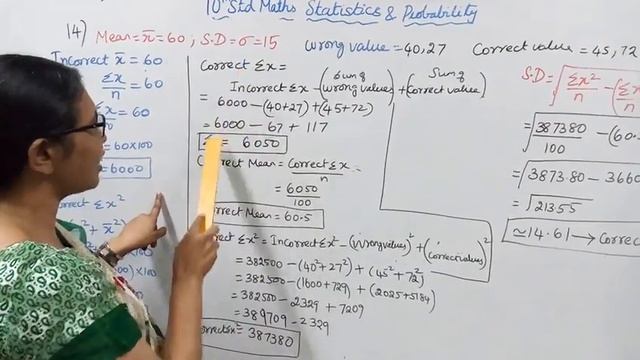 10th Std Maths Statistics & Probability
14) Mean = x̄ = 60 ; S.D = σ = 15
wrong value = 40, 27
Correct value = 45, 72
Incorrect x̄ = 60
Σx/n = 60
Σx = 60
= 60×100
= 6000
Σx²
+ x̄²)
)×100
)×100
Correct Σx =
= Incorrect Σx − (Sum of wrong values) + (Sum of Correct value)
= 6000 − (40+27) + (45+72)
= 6000 − 67 + 117
= 6050
Correct Mean = Correct Σx / n
= 6050/100
Correct Mean = 60.5
Σx² = Incorrect Σx² − (wrong values)² + (correct values)²
= 382500 − (40²+27²) + (45²+72²)
= 382500 − (1600+729) + (2025+5184)
= 382500 − 2329 + 7209
= 389709 − 2329
= 387380
S.D = √Σx²/n − (Σx
= √387380/100 − (60.
= √3873.80 − 3660
= √213.55
≃ 14.61 → Correc